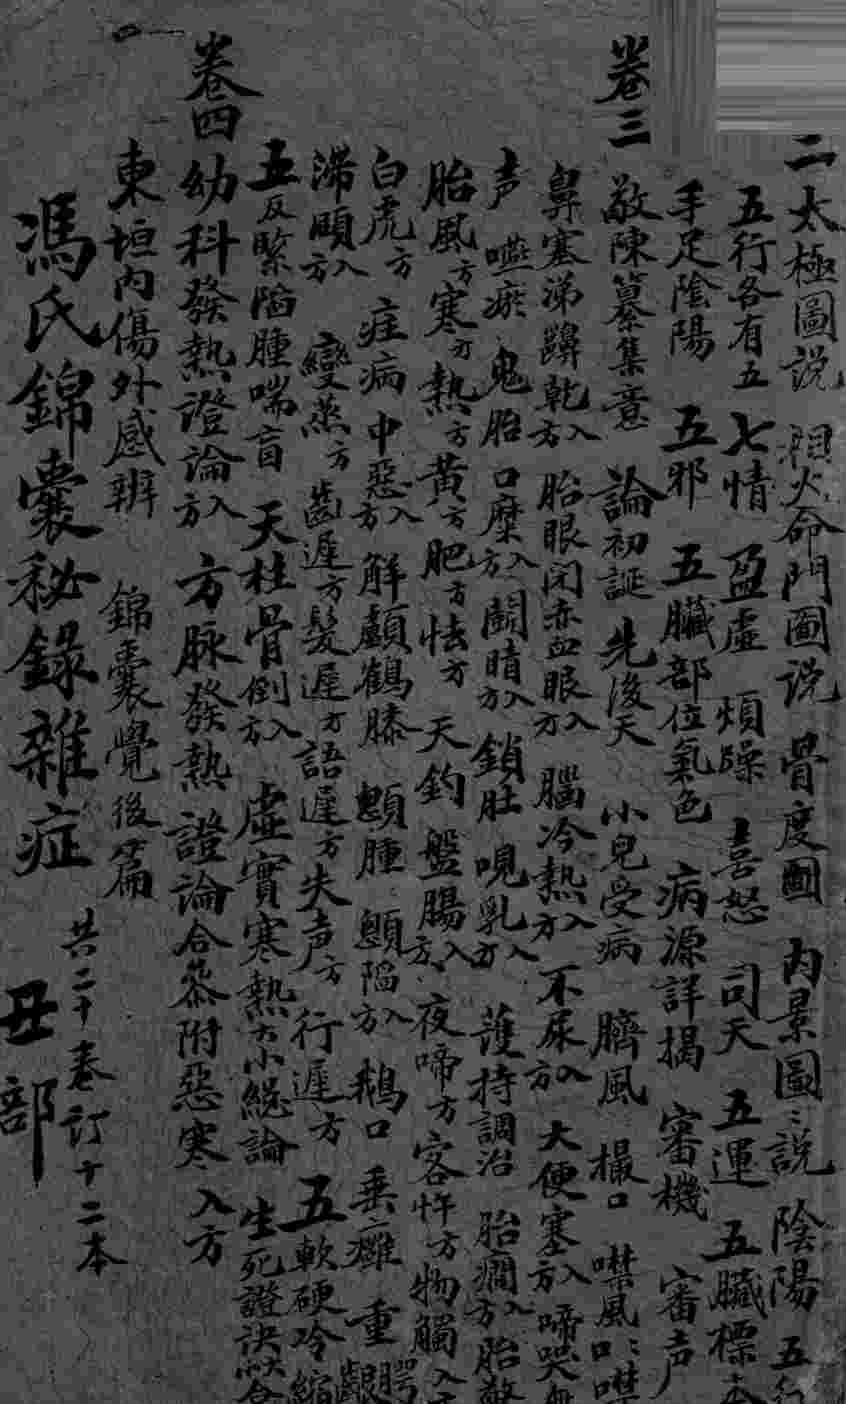 二 太極圖説 相火命門圖説 骨度圖 內景圖説 陰陽五行
五行各有五 七情 盈虛 煩躁 喜怒 司天 五運 五臟標本
手足陰陽 五邪 五臟部位氣色 病源詳揭 審機 審声
卷三 敬陳纂集意 論初誕 先後天 小兒受病 臍風 撮口 噤風口噤
鼻塞涕躋乾入方 胎眼閉赤血眼入方 腦冷熱入方 不尿入方 大便塞入方 啼哭無
声 嚥瘀 鬼胎 口糜入方 鬭睛入方 鎖肚 哯乳入方 護持調治 胎癇入方 胎驚
胎風方 寒方 熱方 黃方 肥方 怯方 天釣 盤腸入方 夜啼方 客忤方 物觸入方
白虎方 疰病 中惡入方 解顱鶴膝 顖腫 顖陷入方 鵝口 垂癰 重齦腭
滯頤入方 變蒸方 齒遲方 髮遲方 語遲方 失声方 行遲方 五軟硬冷縮
五反緊陷腫喘盲 天柱骨倒入方 虛實寒熱大小總論 生死證決
卷四 幼科發熱證論入方 方脉發熱證論合叅附惡寒入方
東垣內傷外感辨 錦囊覺後篇
馮氏錦囊秘錄雜症 共二十卷訂十二本 丑部